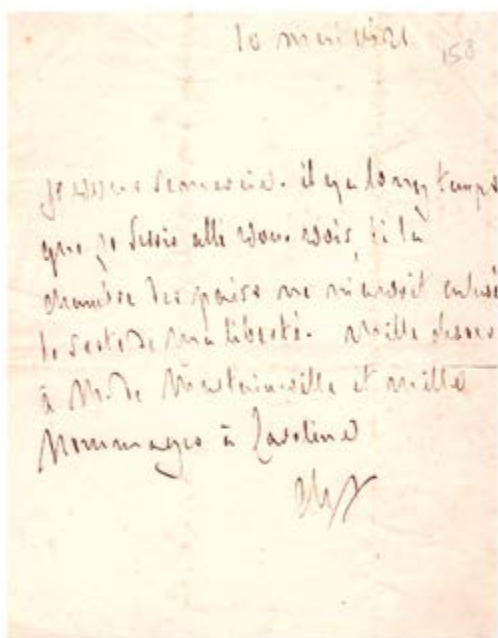 10 mai 1821
158
je vous remercie. il y a longtemps
que je serois allé vous voir, si la
chambre des pairs ne m'avoit enlevé
le reste de ma liberté. mille choses
à Mr. de et mille
hommages à Caroline